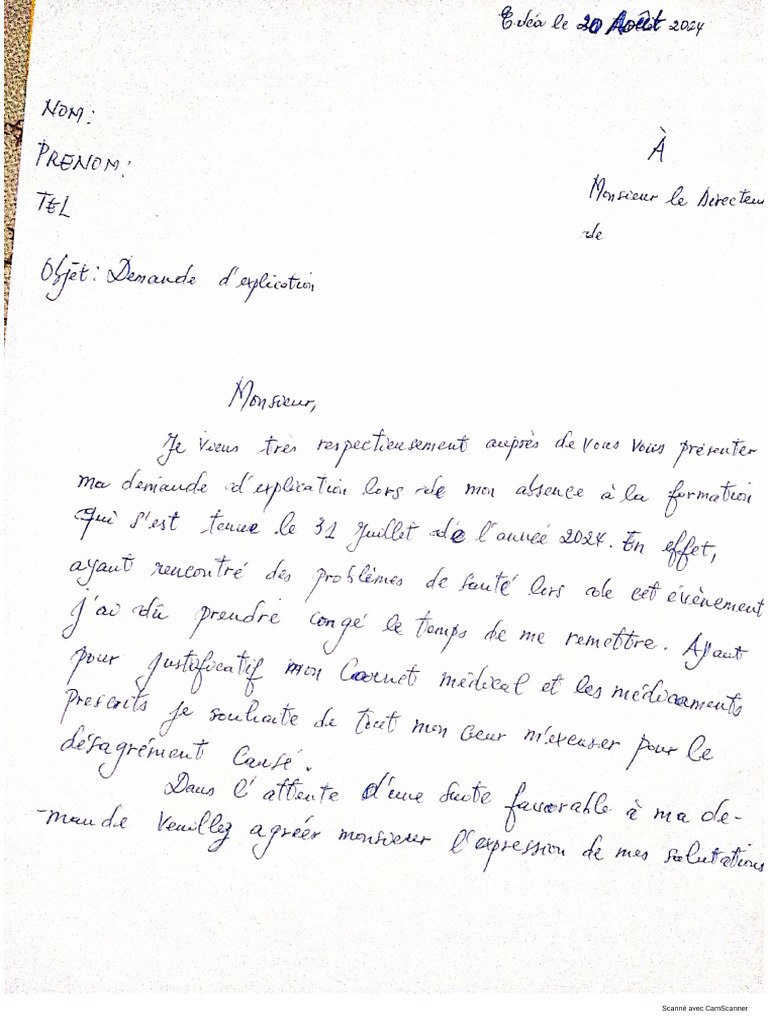 Evéa le 20 Août 2024
NOM:
À
PRENOM:
Monsieur le Directeur
TEL
de
Objet: Demande d'explication
Monsieur,
Je viens très respectieusement auprès de vous vous présenter
ma demande d'explication lors de mon absence à la formation
qui s'est tenue le 31 Juillet de l'année 2024. En effet,
ayant rencontré des problèmes de santé lors de cet évènement
j'ai dû prendre congé le temps de me remettre. Ayant
pour justificatif mon Carnet médical et les médicaments
Prescrits je souhaite de tout mon cœur m'excuser pour le
désagrément causé.
Dans l'attente d'une suite favorable à ma de-
-mande Veuillez agréer monsieur l'expression de mes salutations
Scanné avec CamScanner